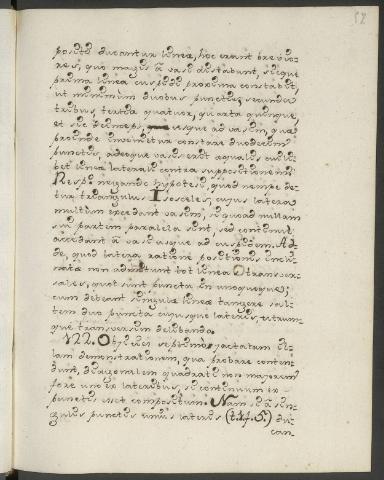 52
posito ducantur lineæ, hoc erunt brevio-
res, quo magis à basi distabunt, sicque
prima linea cuspidi proxima constabit
ut minimum duobus punctis, secunda
tribus, tertia quatuor, quarta quinque,
et sic deinceps, usque ad basim, quæ
proinde invenietur constare duodecim
punctis, adeoque basis erit æqualis cuili-
bet lineæ laterali contra suppositionem.
Resp. negando hypotesi, quod nempe de-
tur triangulus Isosceles, cujus latera
multum excedant basim, et quoad nullam
sui partem paralela sint, sed continuo
accedant à basi usque ad cuspidem. Ad-
de, quod latera ratione positionis incli-
natæ non admittunt tot lineas transver-
sales, quot sint puncta in unoquoque;
cum debeant singulæ lineæ tangere sal-
tem duo puncta cujusque lateris, utrum-
que transversim delibando.
122. Objicies septimo jactatam il-
lam demonstrationem, qua probare conten-
dunt, diagonalem quadrati non majorem
fore uno ex lateribus, si continuum ex
punctis esset compositum. Nam si à sin-
gulis punctis unius lateris (t. 1. f. 5.) du-
can-